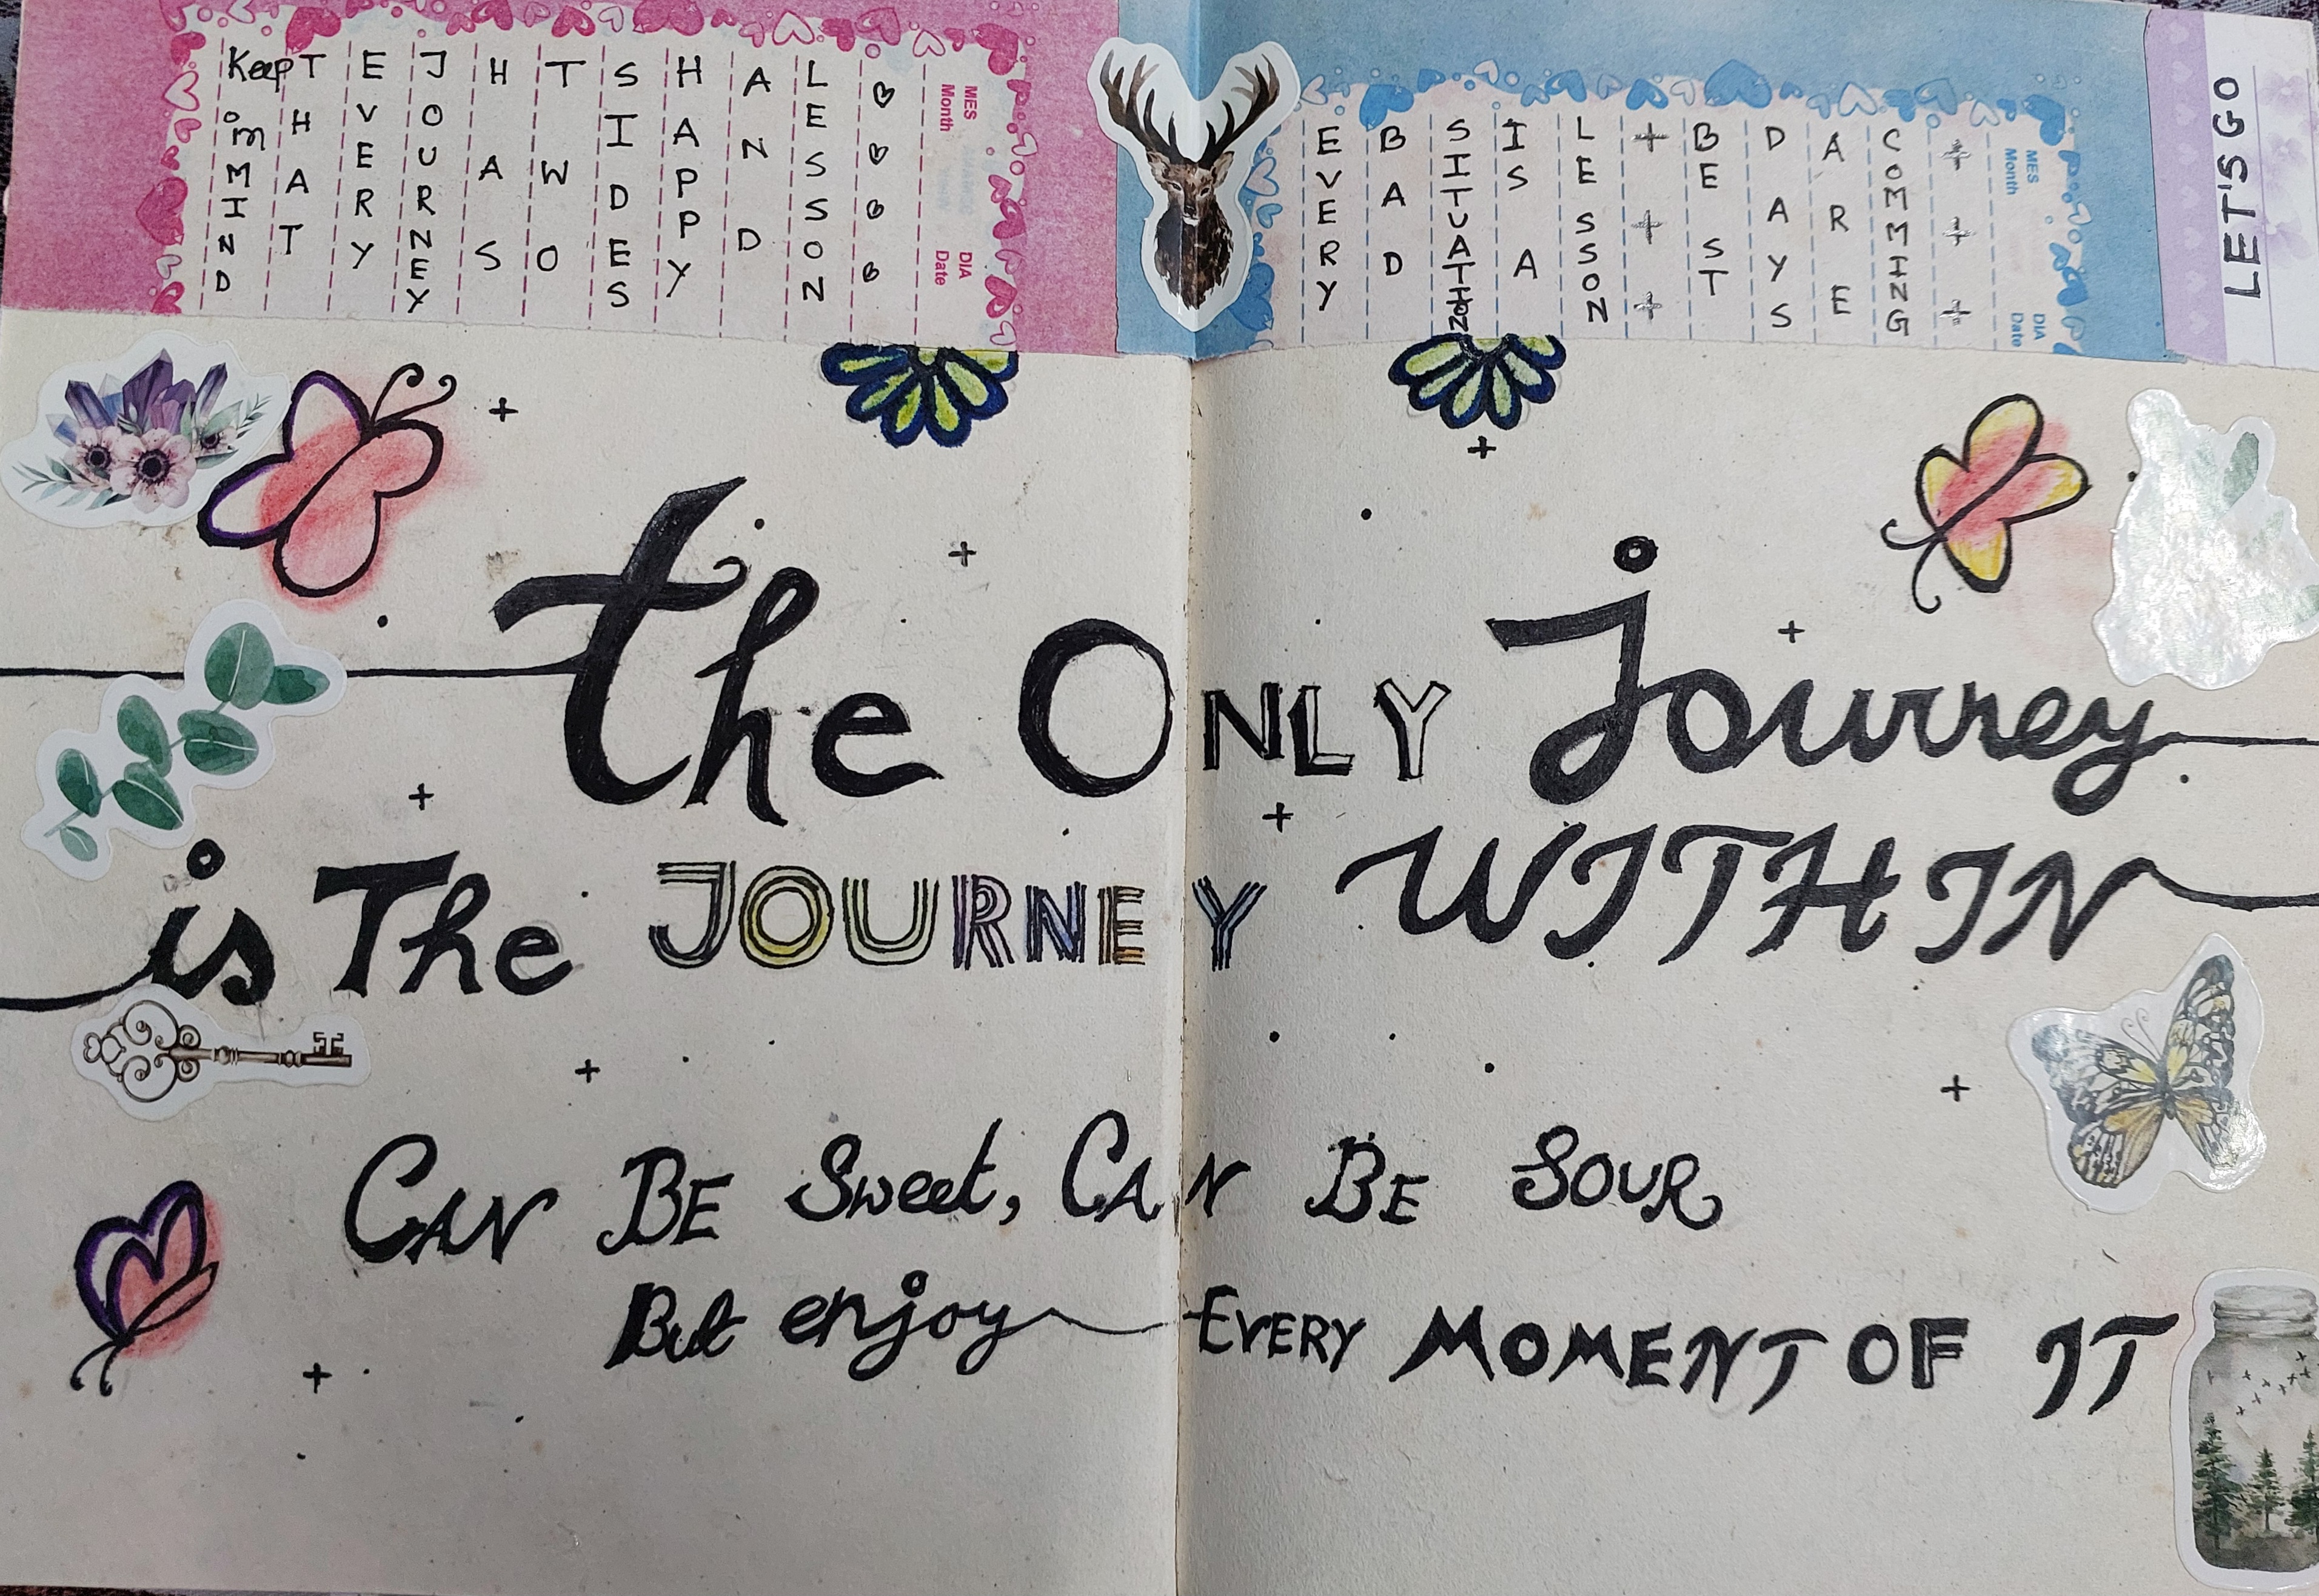 Keep in MIND
THAT
EVERY
JOURNEY
HAS
TWO
SIDES
HAPPY
AND
LESSON
MES
Month
DIA
Date
EVERY
BAD
SITUATION
IS A
LESSON
BEST
DAYS
ARE
COMMING
MES
Month
DIA
Date
LET'S GO
the ONLY Journey
is The JOURNEY WITHIN
CAN BE Sweet, CAN BE SOUR
But enjoy EVERY MOMENT OF IT